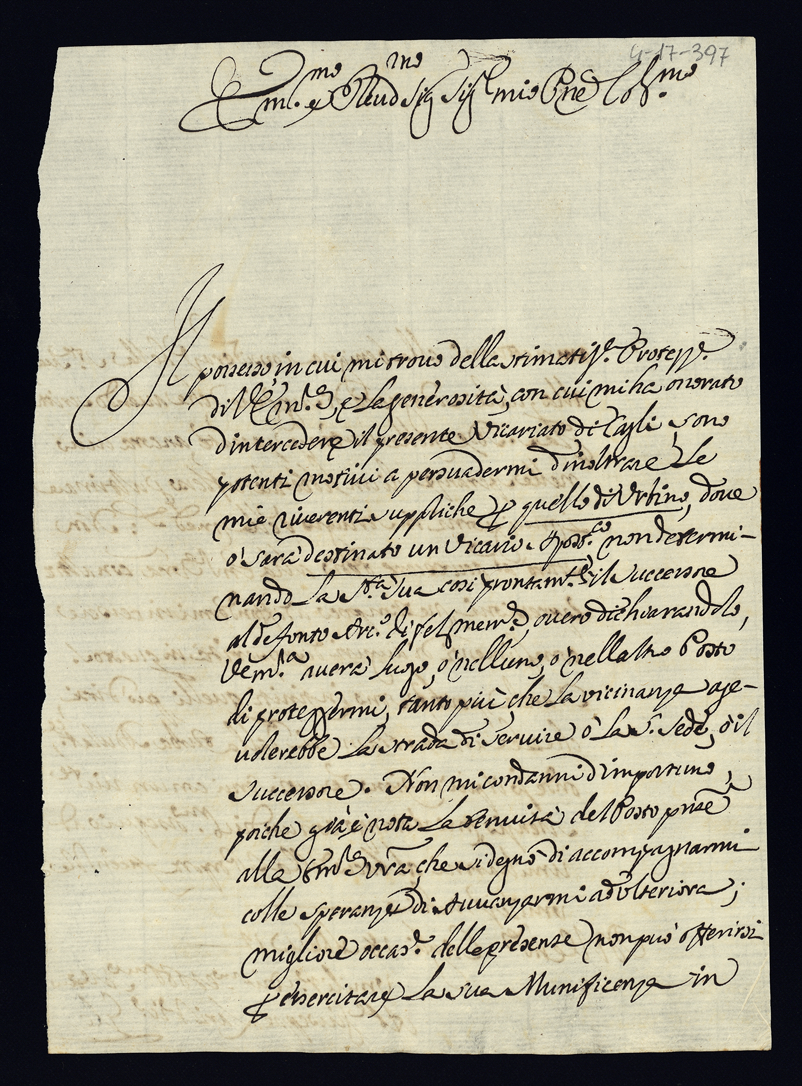 4-17-397
Em.mo e Reud.mo Sig Sig.r mio Pne Col.mo
Il possesso, in cui mi trovo della stimatiss.a Protezz.e
di V. Em.za, e la generosità, con cui mi ha onorato
d'intercedere il presente Vicariato di Cagli, sono
potenti motivi a persuadermi d'inoltrare le
mie riverenti suppliche p quello di Urbino, dove
ò sarà destinato un Vicario Apost.co, non determi-
nando la S.tà Sua così prontam.te il Successore
al defonto Arc.o di fel. mem.a, overo dichiarandolo,
V. Em.za averà luogo, ò nell'uno, ò nell'altro Posto
di proteggermi, tanto più, che la vicinanza age-
volerebbe la strada di servire ò la S. Sede, ò il
Successore. Non mi condanni d'importuno,
poiche già è nota la tenuità del Posto pnte
alla Em.za Vra, che si degnò di accompagnarmi
colle speranze di Avvanzarmi ad ulteriora;
migliore occas.e della presente non può offerirsi
p esercitare la sua Munificenza in